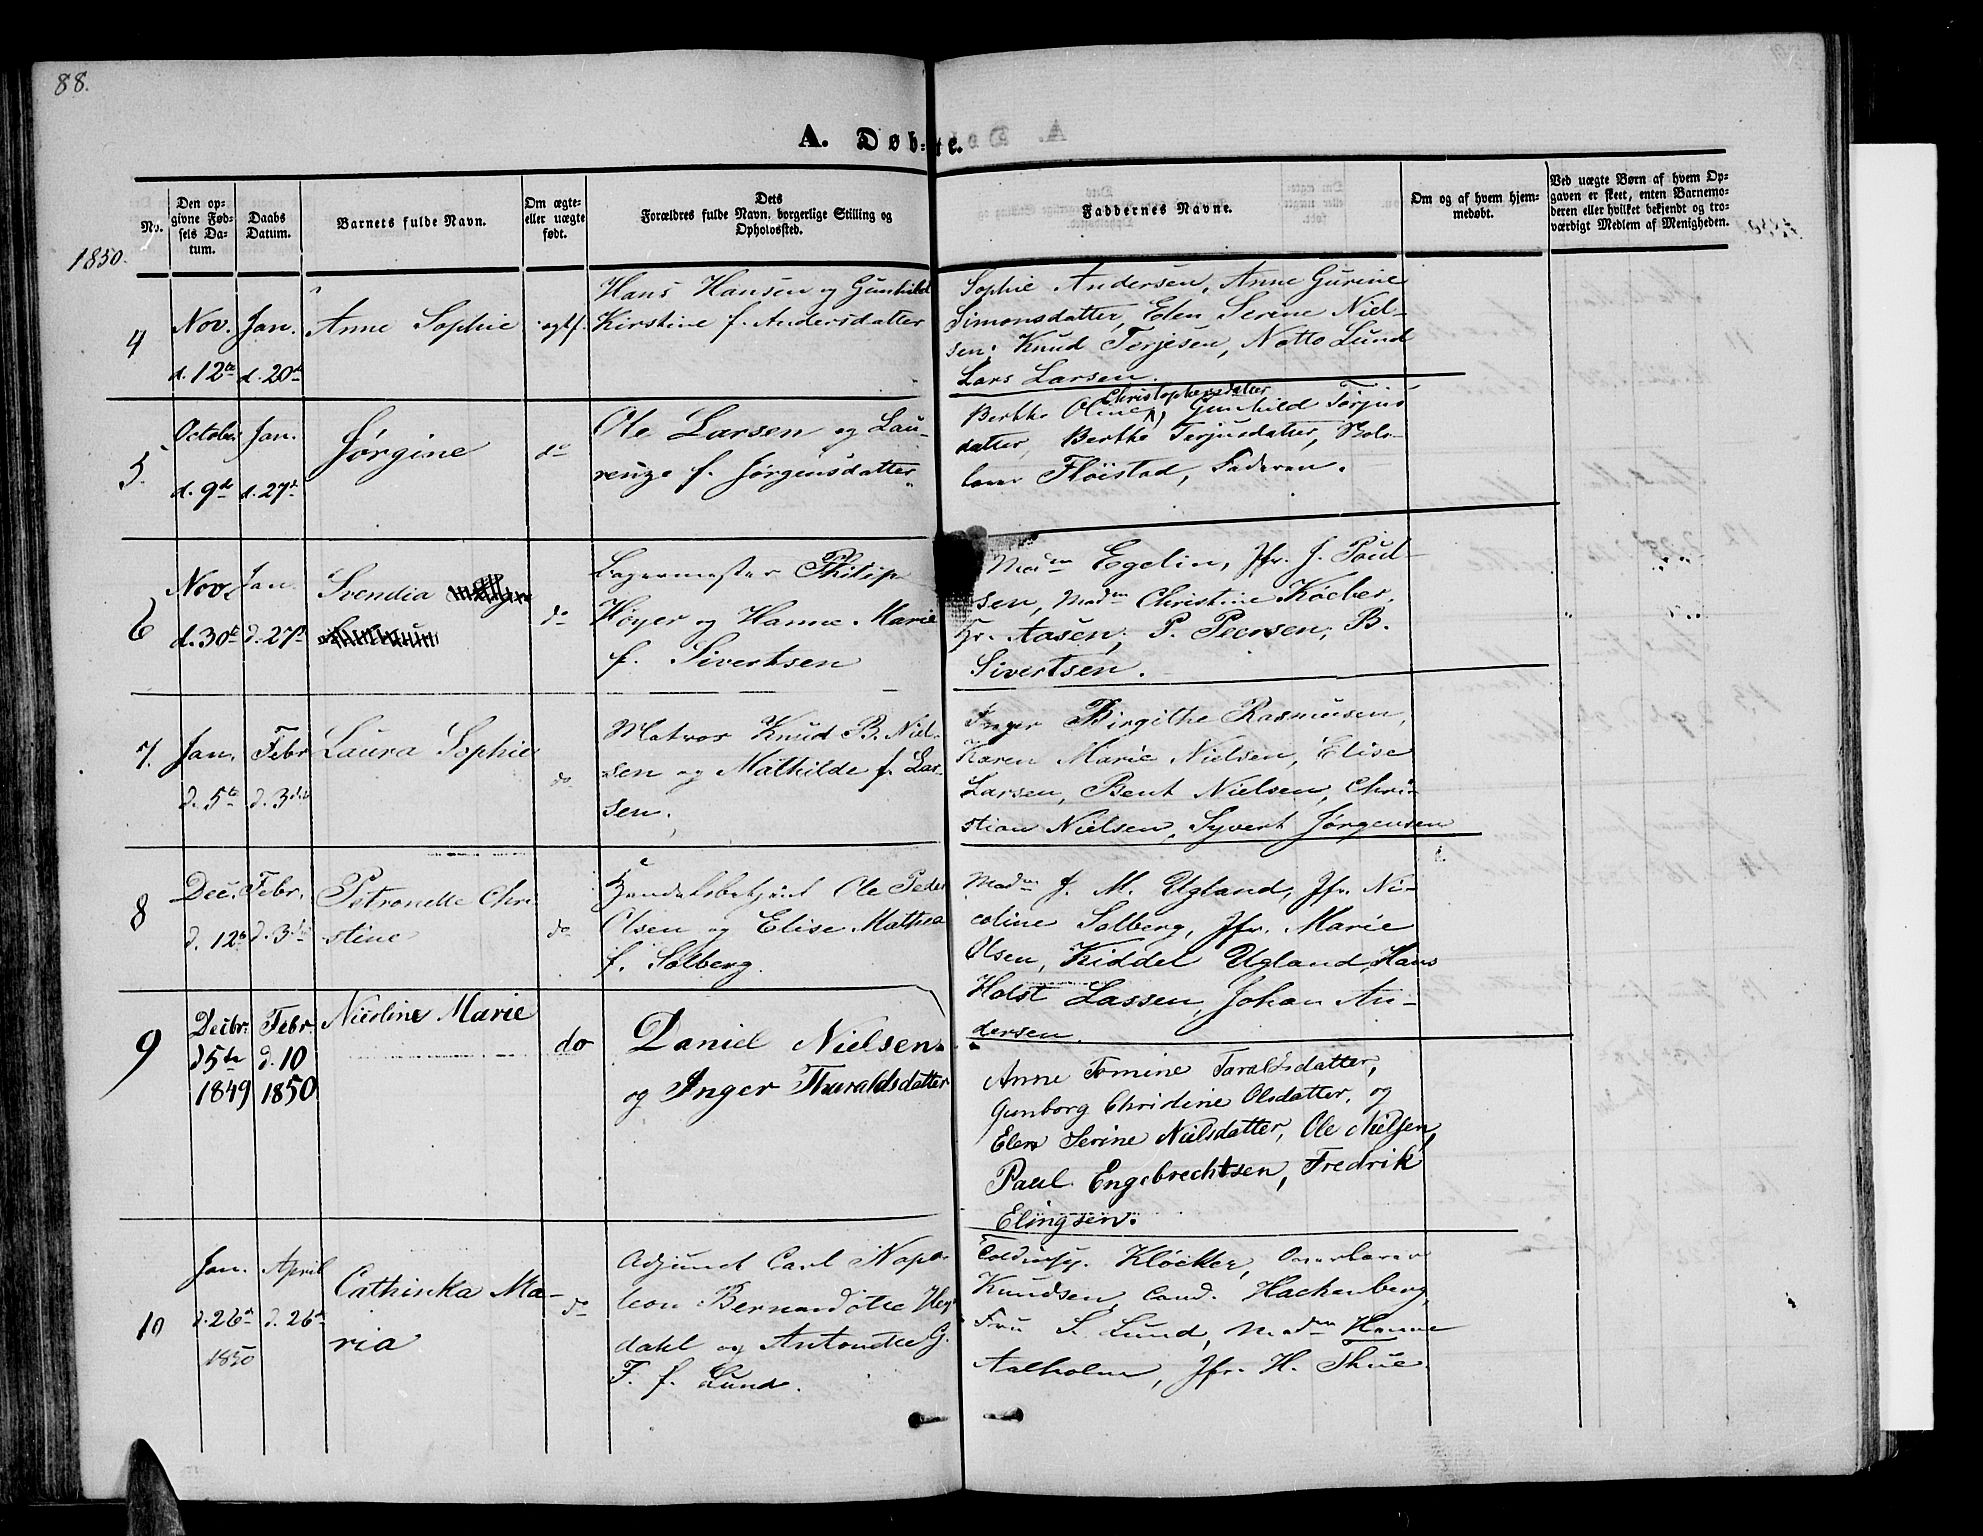 88.
A. Døbte.
No.
Den op-
givne Fød-
sels Da-
tum.
Daabs
Datum.
Barnets fulde Navn.
Om ægte-
eller uægte
født.
Dets
Forældres fulde Navn, borgerlige Stilling og
Opholdssted.
Faddernes Navne.
Om og af hvem hjem-
medøbt.
Ved uægte Børn af hvem Op-
gaven er skeet, enten Barnemo-
deren eller hvilket bekjendt og tro-
værdigt Medlem af Menigheden.
1850.
4
Nov.
d. 12te
Jan.
d. 20de
Anne Sophie
ægtf.
Hans Hansen og Gunhild
Kirstine f. Andersdatter
Sophie Andersen, Anne Gurine
Simonsdatter, Elen Serine Niel-
sen; Knud Terjesen, Notto Lund
Lars Larsen.
5
October
d. 9de
Jan.
d. 27de
Jørgine
do
Ole Larsen og Lau-
renze f. Jørgensdatter
Christophersdatter
Berthe Oline, Gunhild Torjus
datter, Berthe Terjusdatter,
Fløistad, Faderen.
6
Nov.
d. 30te
Jan.
d. 27de
Svendia
do
Lagermester Philip
Høyer og Hanne Marie
f. Sivertsen
Madm Egelin, Jfr. J. Poul-
sen, Madm Christine Köcher,
Gr. Aasen, P. Peersen, B.
Sivertsen.
7.
Jan.
d. 5te
Febr
d. 3die
Laura Sophie
do
Matros Knud B. Niel-
sen og Mathilde f. Lar-
sen.
Inger Birgithe Rasmusen,
Karen Marie Nielsen, Elise
Larsen, Bent Nielsen, Chri-
stian Nielsen, Syvert Jørgensen
8
Dec.
d. 12te
Febr.
d. 3die
Petronelle Chri
stine
do
Handelsbetjent Ole Peder
Olsen og Elise Mathea
f. Solberg.
Madm J. M. Ugland, Jfr. Ni-
coline Solberg, Jfr. Marie
Olsen, Kiddel Ugland, Hans
Holst Lassen, Johan An-
dersen.
9
Decbr.
d 5te
1849
Febr.
d. 10
1850
Nicoline Marie
do
Daniel Nielsen
og Inger Tharaldsdatter
Anne Tomine Taraldsdatter,
Gunborg Christine Olsdatter, og
Elen Serine Nielsdatter, Ole Nielsen,
Paul Engebrechtsen, Fredrik
Elingsen.
10
Jan.
d. 26de
1850
April
d. 26de
Cathinka Ma-
ria
do
Adjunct Carl Napo-
leon Bernardotte Hey-
dahl og Antonette G.
F. f. Lund.
Kløcker, Overlærer
Knudsen, Cand. Hackenberg,
Fru S. Lund, Madm Hanne
Aalholm, Jfr. H. Thue.